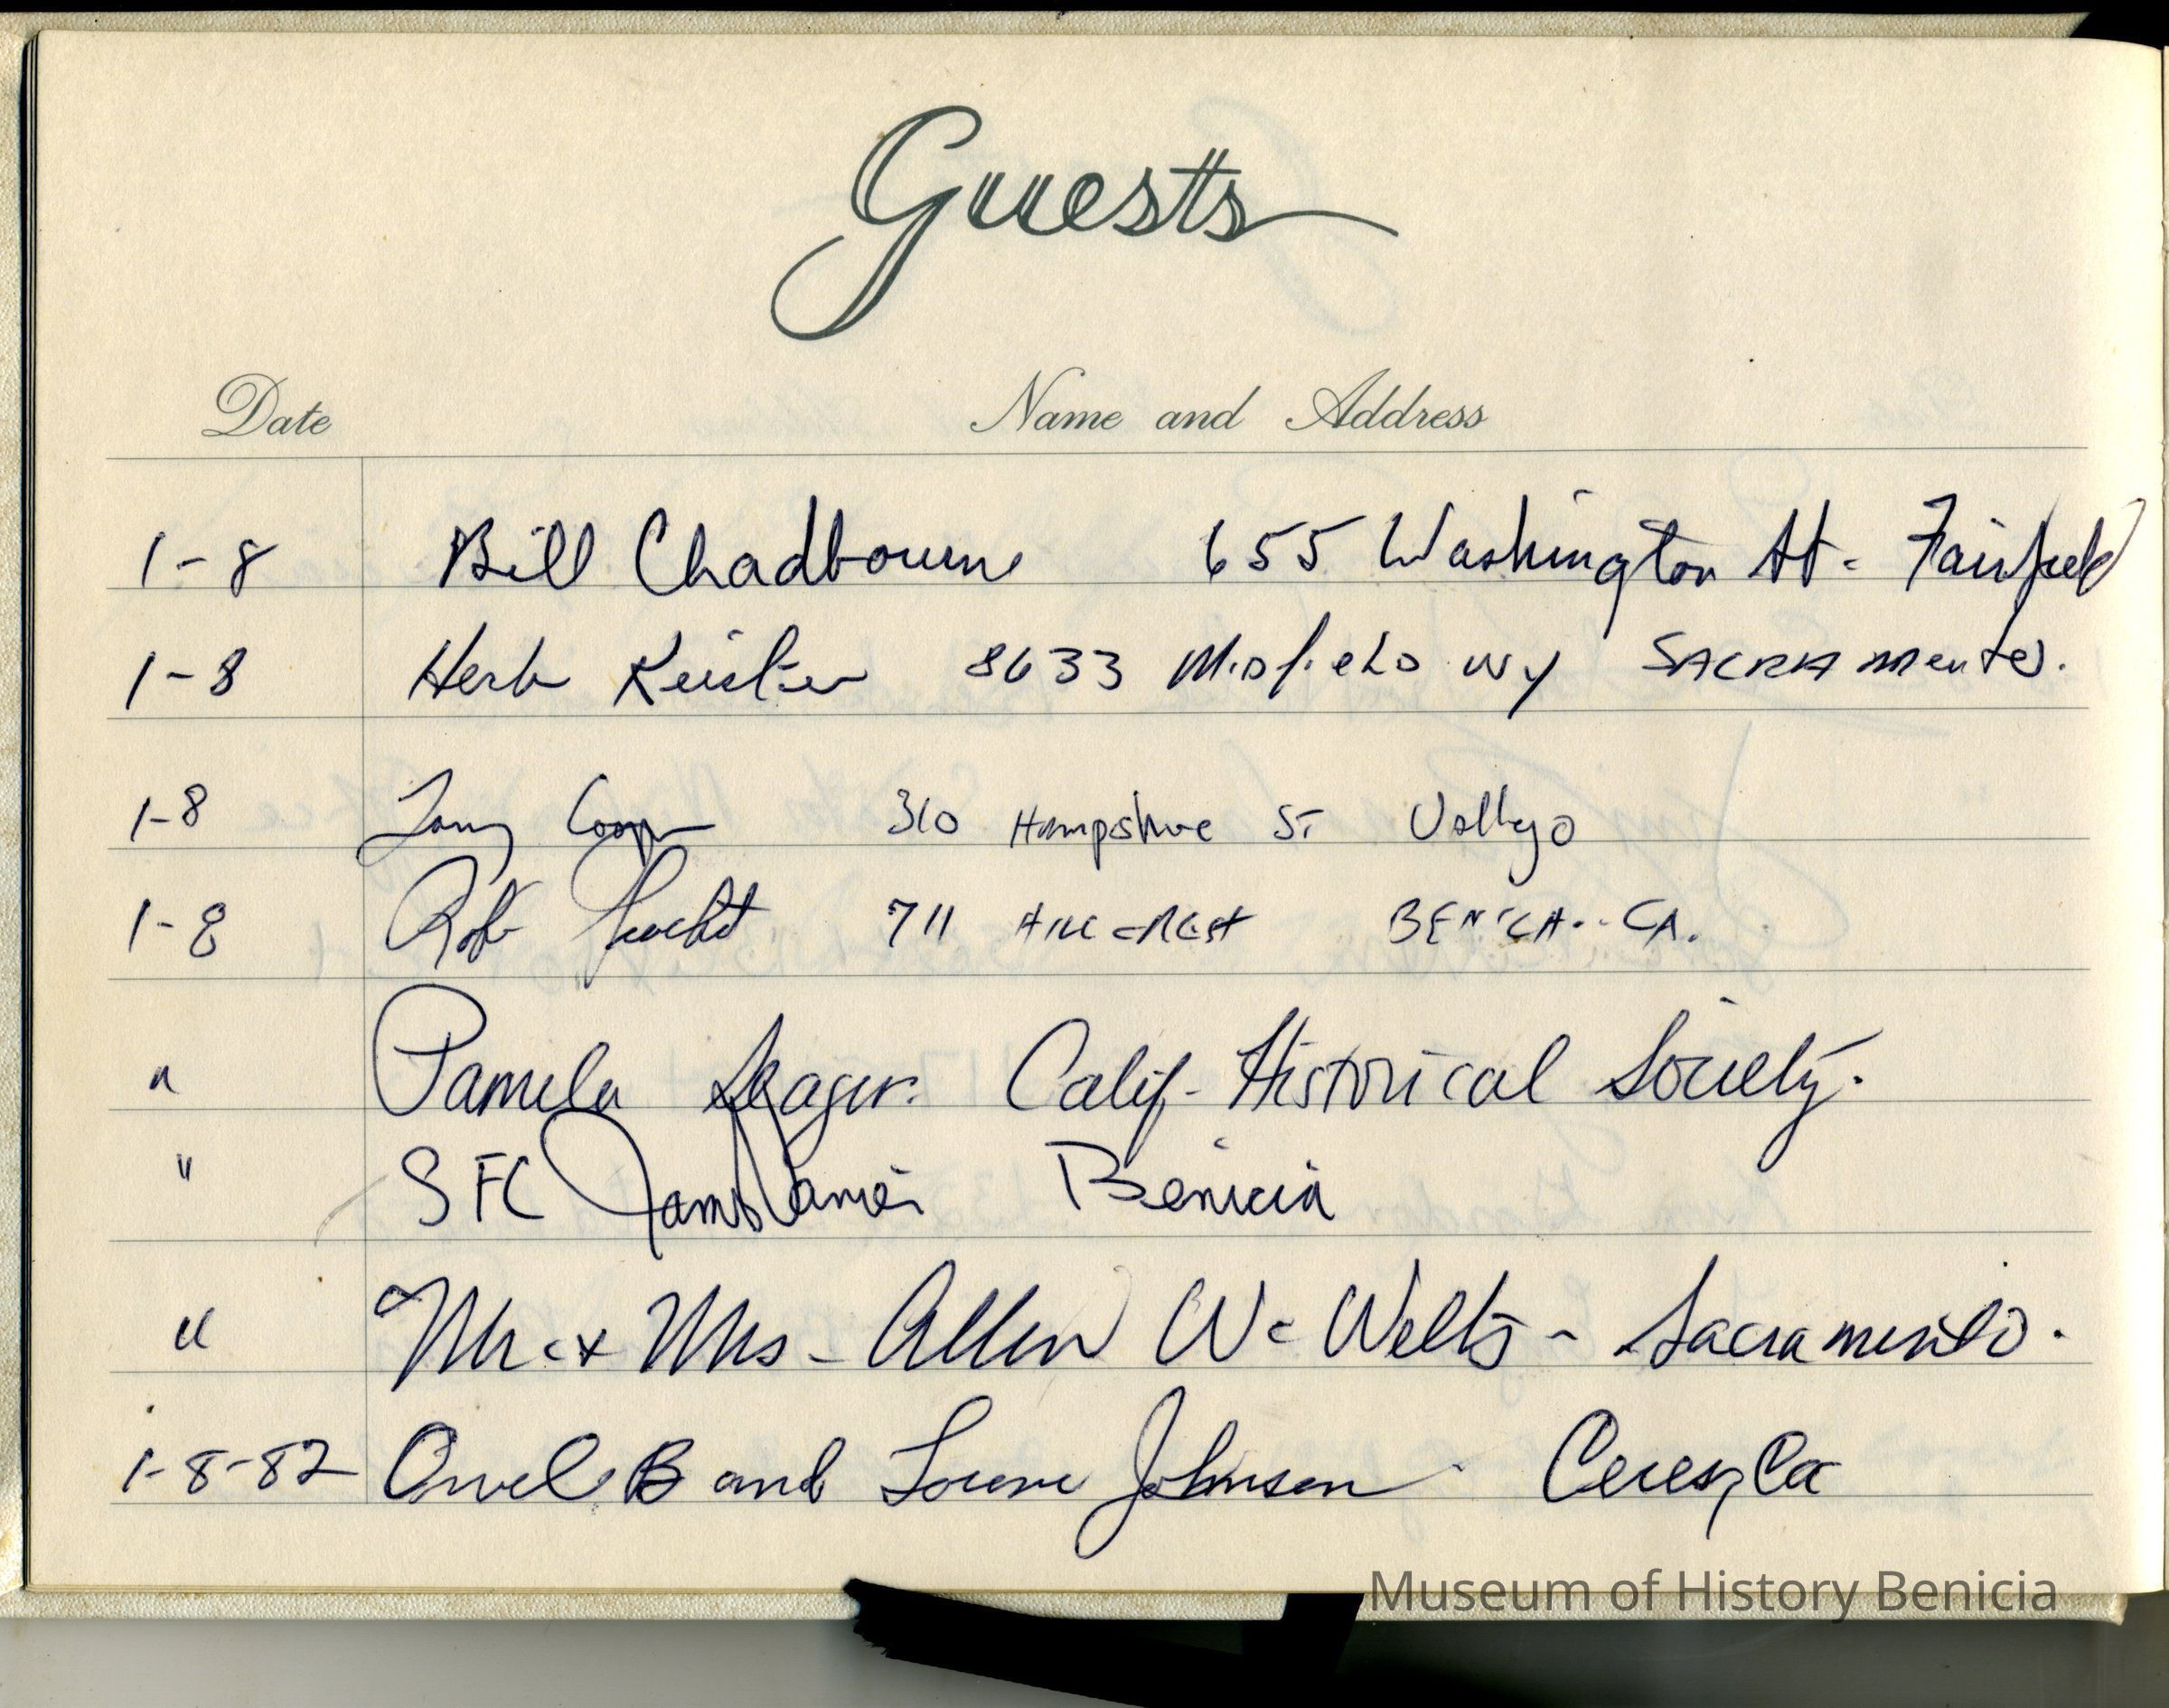 Guests
Date Name and Address
1-8 Bill Chadbourne 655 Washington St - Fairfield
1-8 Herb 8633 Midfield Wy Sacramento.
1-8 Cooper 310 Hampshire St Vallejo
1-8 Rob 711 Hillcrest BENICIA.. CA.
" Pamela Seager. Calif- Historical Society.
" SFC Benicia
" Mr. & Mrs - Allen W. Welts - Sacramento.
1-8-82 Orvel B and Johnson Ceres, Ca
Museum of History Benicia